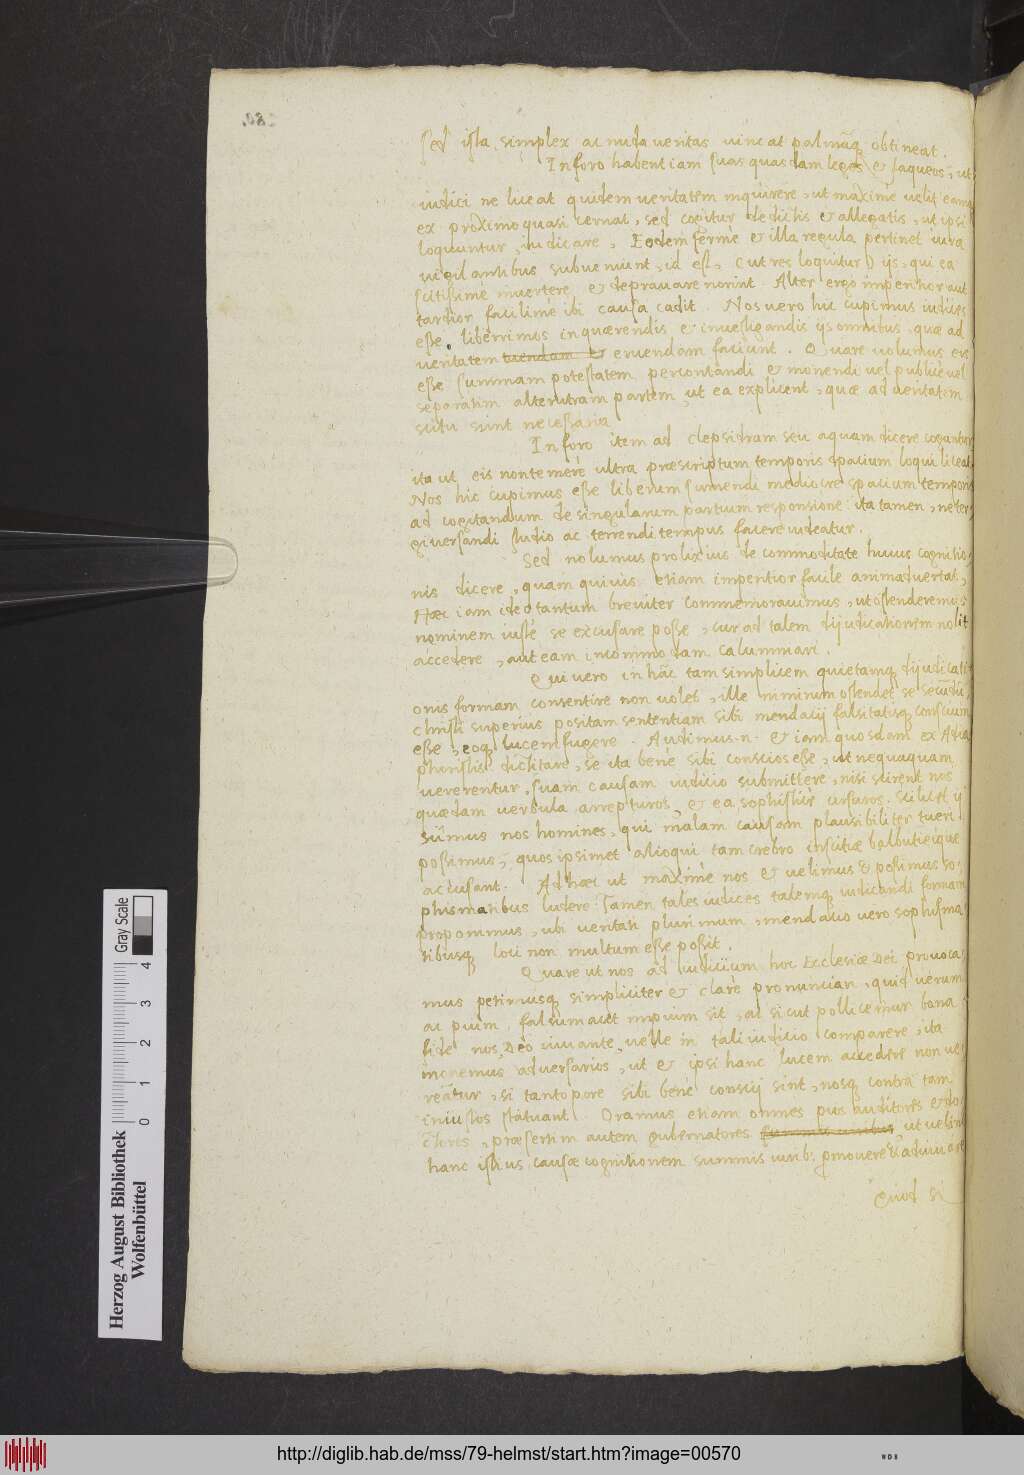 sed ista simplex ac nuda veritas vincat palmāq obtineat.
In foro habent iam suas quasdam leges et laqueos, ut
iudici ne liceat quidem veritatem inquirere, ut maximè velit eam
ex proximo quasi cernat, sed cogitur de dictis et allegatis, ut ipsi
loquuntur, iudicare, Eodem fermè et illa regula pertinet iura
vigilantibus subveniunt, id est, (ut res loquitur) ijs, qui ea
scitissimè invertere et depravare norint. Alter ergo imperitior aut
tardior facilimè ibi causa cadit. Nos vero hic cupimus iudices
esse, liberrimos in quærendis et investigandis ijs omnibus, quæ ad
veritatem tuendam et eruendam faciunt. Quare volumus eis
esse summam potestatem percontandi et monendi vel publicè vel
separatim alterutram partem, ut ea explicent, quæ ad veritatem
scitu sunt necessaria
In foro item ad clepsidram seu aquam dicere coguntur
ita ut eis non temerè ultra præscriptum temporis spacium loqui liceat.
Nos hic cupimus esse liberum sumendi mediocre spacium temporis
ad cogitandum de singularum partium responsione: ita tamen, ne ter-
giversandi studio ac terendi tempus facere videatur.
Sed nolumus prolixius de commoditate huius cognitio-
nis dicere, quam quivis etiam imperitior facile animadvertat,
Hæc iam ideo tantum breviter commemoravimus, ut ostenderemus
neminem iustè se excusare posse, cur ad talem dijudicationem nolit
accedere, aut eam incommodam calumniari.
Qui vero in hāc tam simplicem quietamq dijudicati-
onis formam consentire non volet, ille nimirum ostendet se secūdū
Christi superius positam sententiam sibi mendacij falsitatisq conscium
esse, eoq lucem fugere. Audimus .n. et iam quosdam ex Adia-
phoristis dictitare, se ita benè sibi conscios esse, ut nequaquam
vererentur, suam causam iudicio submittere, nisi scirent nos
quædam verbula arrepturos, et ea sophisticè versuros. Scilicet ij
sumus nos homines, qui malam causam plausibiliter tueri
possimus, quos ipsimet alioqui tam crebro inscitiæ balbutieique
accusant. Ad hæc ut maximè nos et velimus & possimus so-
phismatibus ludere: Tamen tales iudices talemq iudicandi formam
proponimus, ubi veritati plurimum, mendacio vero sophisma-
tibusq loci non multum esse possit.
Quare ut nos ad iudicium hoc Ecclesiæ Dei provoca-
mus petimusq simpliciter et clarè pronunciari, quid verum
ac pium, falsum aut impium sit, ac sicut pollicemur bona
fide nos, Deo iuvante, velle in tali iudicio comparere, ita
monemus adversarios, ut et ipsi hanc lucem accedere non ve-
reātur, si tantopere sibi bene conscij sint, nosq contra tam
iniustos statuant. Oramus etiam omnes pios auditores et do-
ctores, præsertim autem gubernatores, ut velint
hanc istius causæ cognitionem summis virib: promovere & adiuvare
Quod si
http://diglib.hab.de/mss/79-helmst/start.htm?image=00570
Herzog August Bibliothek
Wolfenbüttel
Gray Scale
0 1 2 3 4
WDB